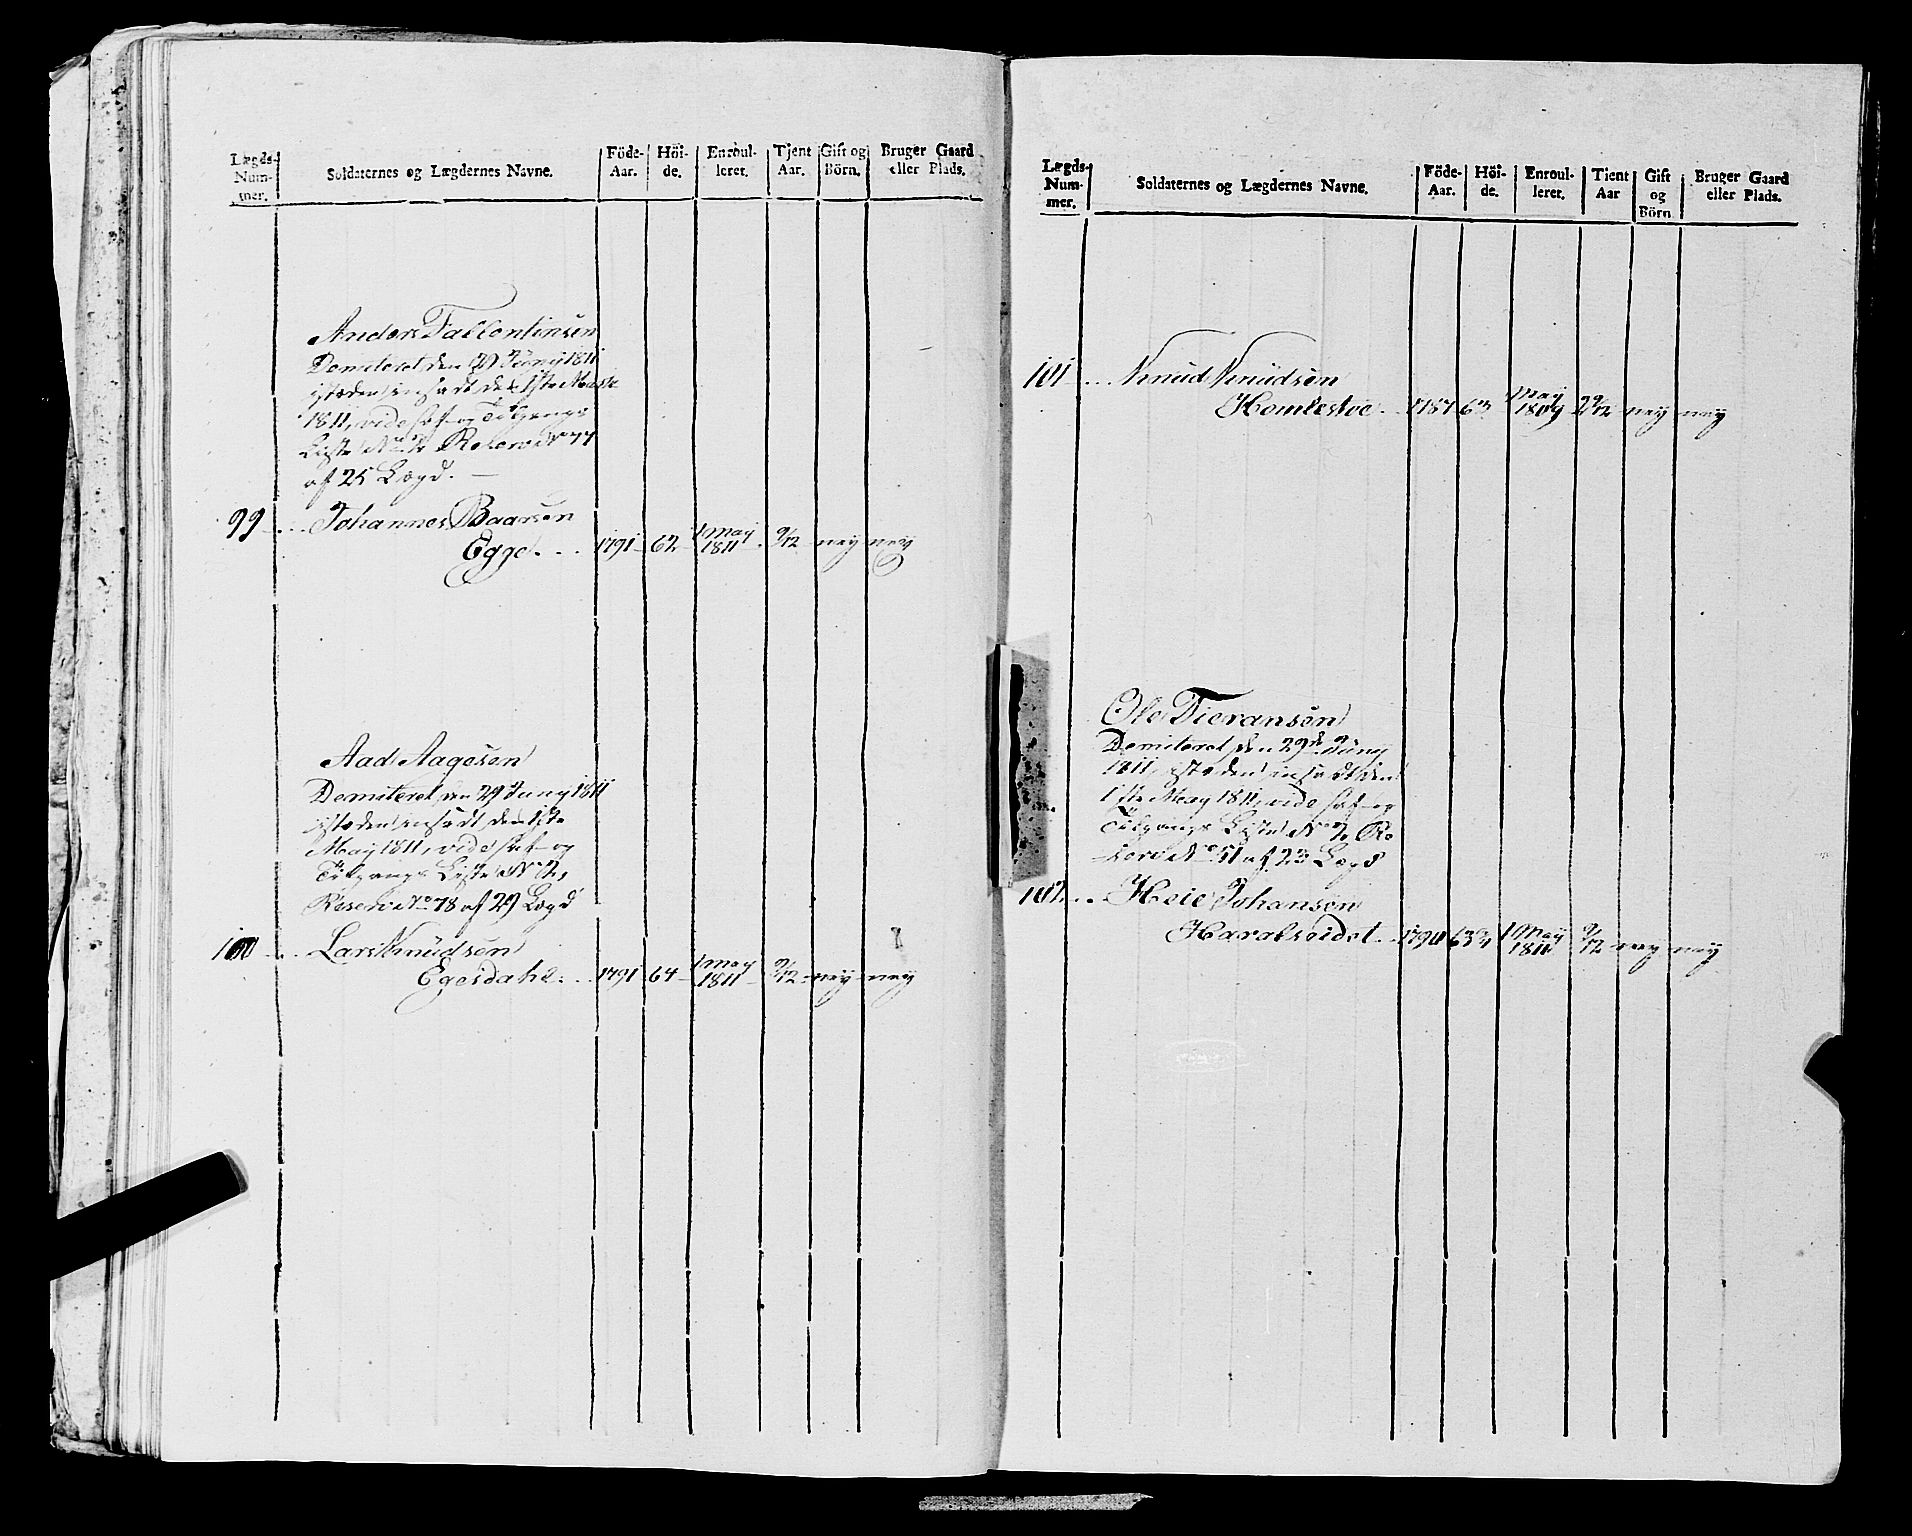 Lægds-Num-mer. Soldaternes og Lægdernes Navne. Föde-Aar. Höi-de. Enroul-leret. Tjent Aar. Gift og Börn. Bruger Gaard eller Plads.
Anders Tallentinsen
Demiteret den 29 Juny 1811
istæden insadt den 1ste
1811, vide Af- og Tilgangs
Liste No 2, Reserve No 77
af 25 Lægd. —
99 ... Johannes Baarsen
Egge. . . 1791 62 1 May 1811 9/12 ney ney
Aad Aagesen
Demiteret den 29 Juny 1811
istæden insadt den 1ste
May 1811, vide Af- og
Tilgangs Liste No 2,
Reserve No 78 af 29 Lægd
100 ... Lars Knudsen
Egesdahl. . . 1791 64 1 May 1811 9/12 ney ney
Lægds-Num-mer. Soldaternes og Lægdernes Navne. Föde-Aar. Höi-de. Enroul-leret. Tient Aar Gift og Börn Bruger Gaard eller Plads.
101 ... Knud Knudsen
Homlestoe. 1787 63 May 1809 2 9/12 ney ney
Ole Tieransen
Demiteret den 29de Juny
1811, istæden insadt den
1ste May 1811, vide Af- og
Tilgangs Liste No 2, Re
serve No 51 af 23 Lægd
102 ... Heie Johansen
Haralseidet. 1790 63 3/4 1 May 1811 9/12 ney ney